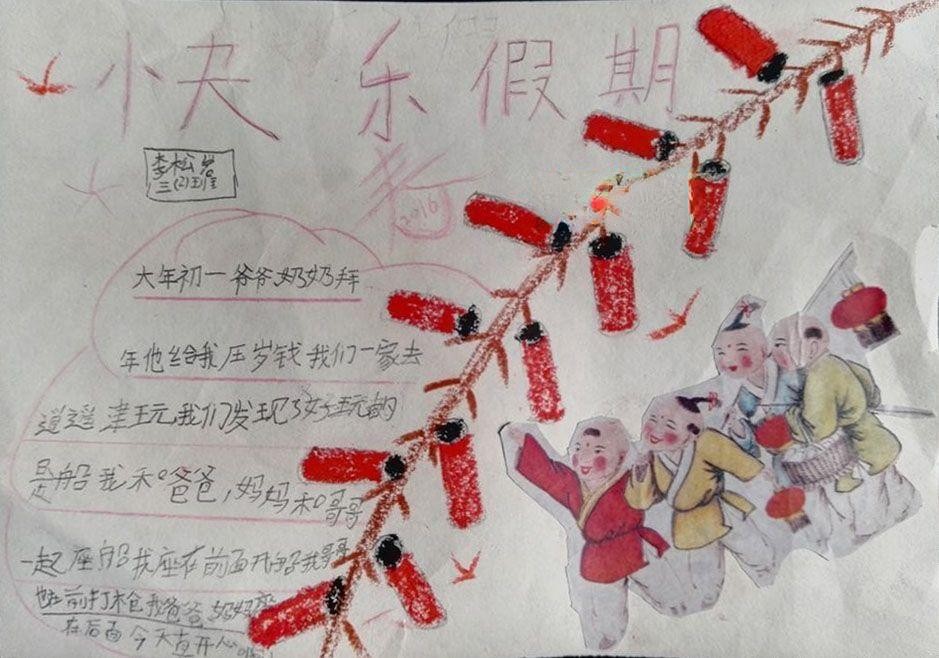 快乐假期
李松岩
三(2)班
2016
大年初一爷爷奶奶拜
年他给我压岁钱我们一家去
逍遥津玩我们发现了好玩的
是船我和爸爸,妈妈和哥哥
一起座船我座在前面开船我哥哥
也在前打枪我爸爸妈妈座
在后面今天真开心